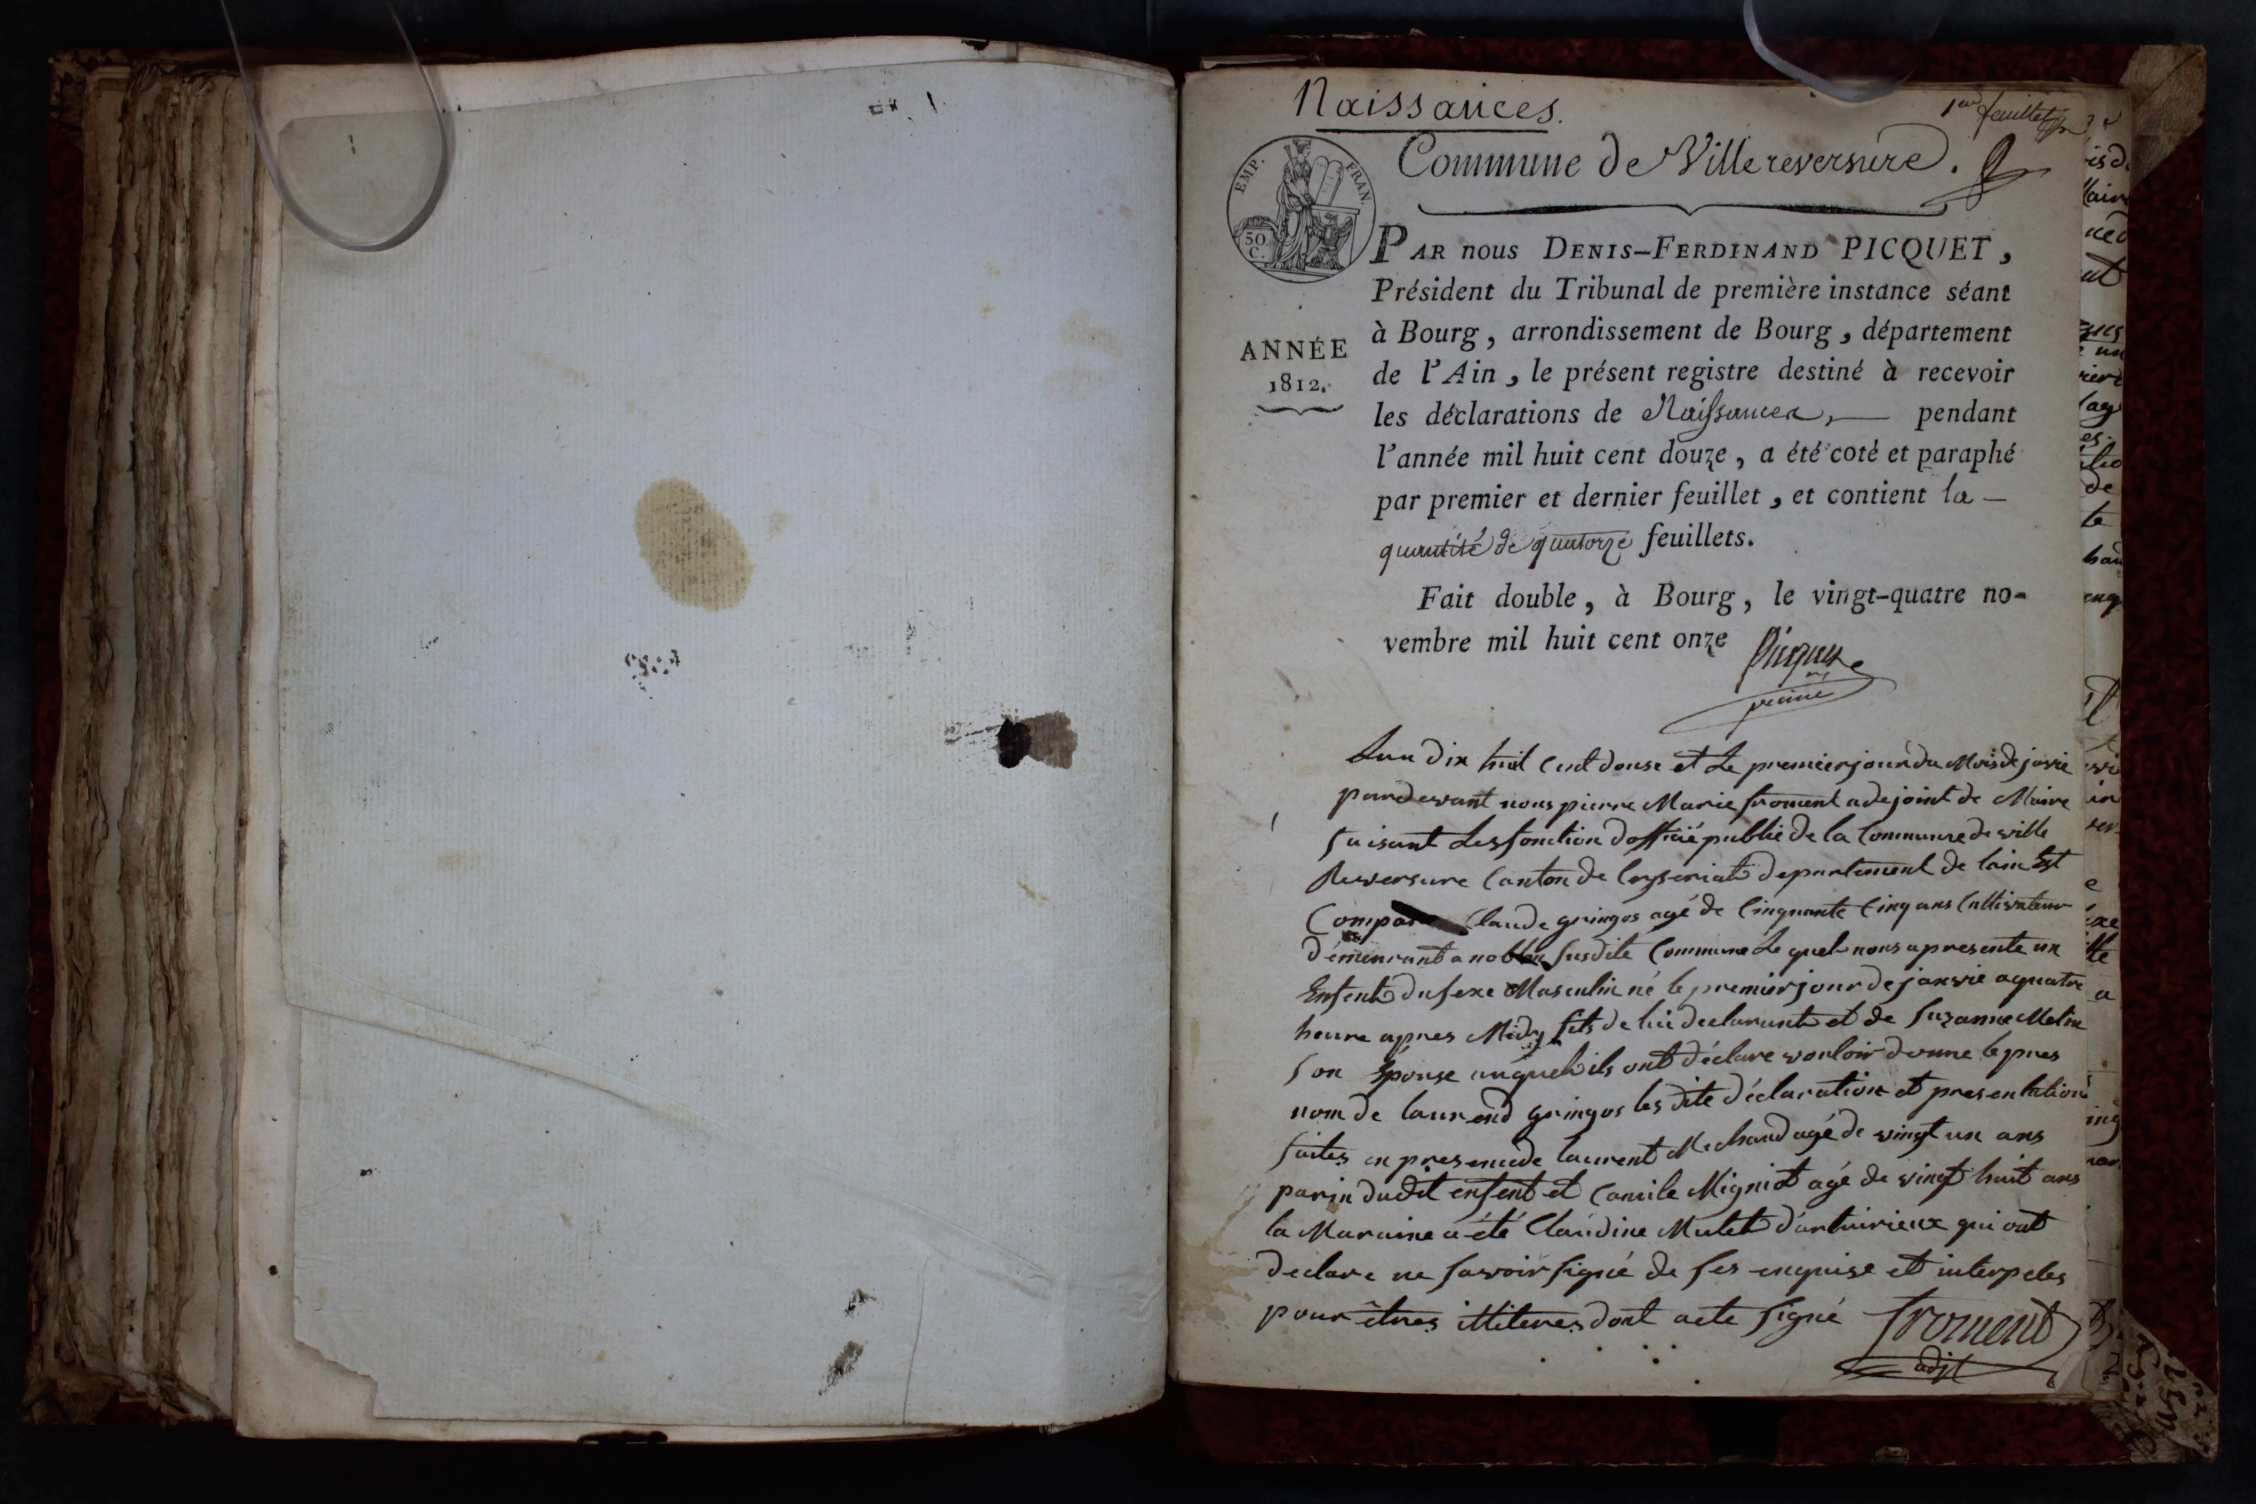 Naissances.
1er feuillet
Commune de Villereversure.
EMP. FRAN.
50 C.
PAR nous DENIS-FERDINAND PICQUET,
Président du Tribunal de première instance séant
à Bourg, arrondissement de Bourg, département
ANNÉE
1812.
de l'Ain, le présent registre destiné à recevoir
les déclarations de Naissances, — pendant
l'année mil huit cent douze, a été coté et paraphé
par premier et dernier feuillet, et contient la —
quantité de quatorze feuillets.
Fait double, à Bourg, le vingt-quatre no-
vembre mil huit cent onze
Picquet
Lan dix huit cent douse et Le premier jour du Mois de javie
pardevant nous pierre Marie froment adejoint de Maire
faisant Les fonction dofficié public de la Commune de ville
Reversure Canton de Ceyseriat departement de lain Est
Compar Claude gringos agé de Cinquante Cinq ans Cultivateur
démeurant a noblin susdite Commune Le quel nous a presente un
Enfent du sexe Masculin né le premier jour de janvie a quatre
heure apres Midy fils de lui declarant et de suzanne Melin
son Epouse auquel ils ont déclare vouloir donne le pres
nom de laurend gringos les dite déclaration et presentation
faites en presence de laurent Mechaud agé de vingt un ans
parin dudit enfent et Camile Migniot agé de vingt huit ans
la Maraine a été Claudine Mulet d'artuirieux qui ont
declare ne savoir signé de ses enquise et interpeles
pour êtres illiteres dont acte signé froment
adjt